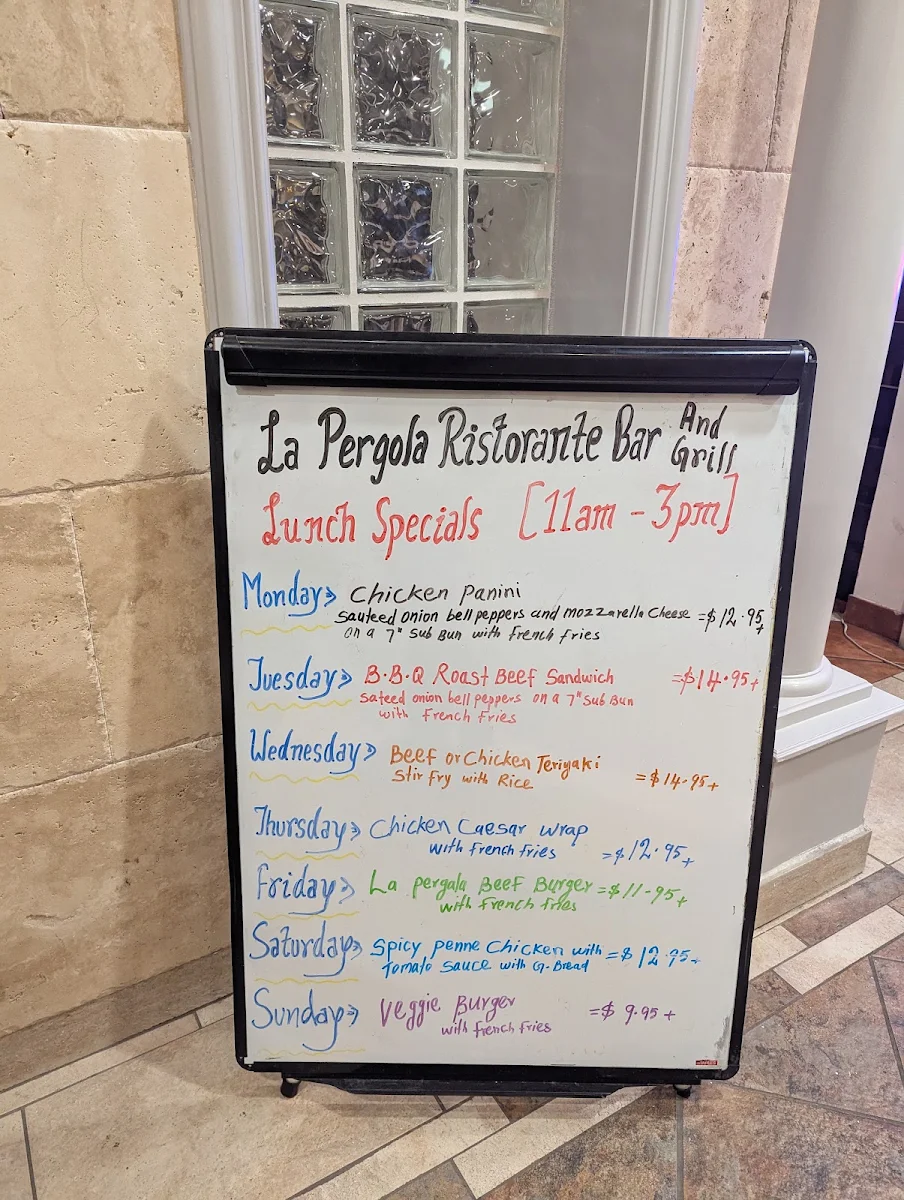 La Pergola Ristorante Bar And Grill
Lunch Specials [11am - 3pm]
Monday» Chicken Panini
Sauteed onion bell peppers and mozzarella cheese =$12.95+
on a 7" Sub Bun with french fries
Tuesday» B.B.Q Roast Beef Sandwich =$14.95+
Sateed onion bell peppers on a 7" Sub Bun
with french fries
Wednesday» Beef or Chicken Teriyaki
Stir fry with Rice =$14.95+
Thursday» Chicken Caesar wrap
with french fries =$12.95+
Friday» La pergala Beef Burger =$11.95+
with french fries
Saturday» Spicy penne Chicken with =$12.95+
Tomato Sauce with G-Bread
Sunday» Veggie Burger =$9.95+
with french fries